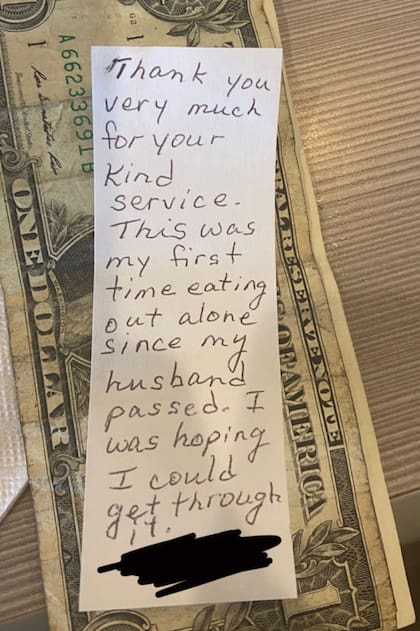 Thank you
very much
for your
Kind
service.
This was
my first
time eating
out alone
since my
husband
passed. I
was hoping
I could
get through
it.
A66233691B
1
ONE DOLLAR
FEDERAL RESERVE NOTE
OF AMERICA
1